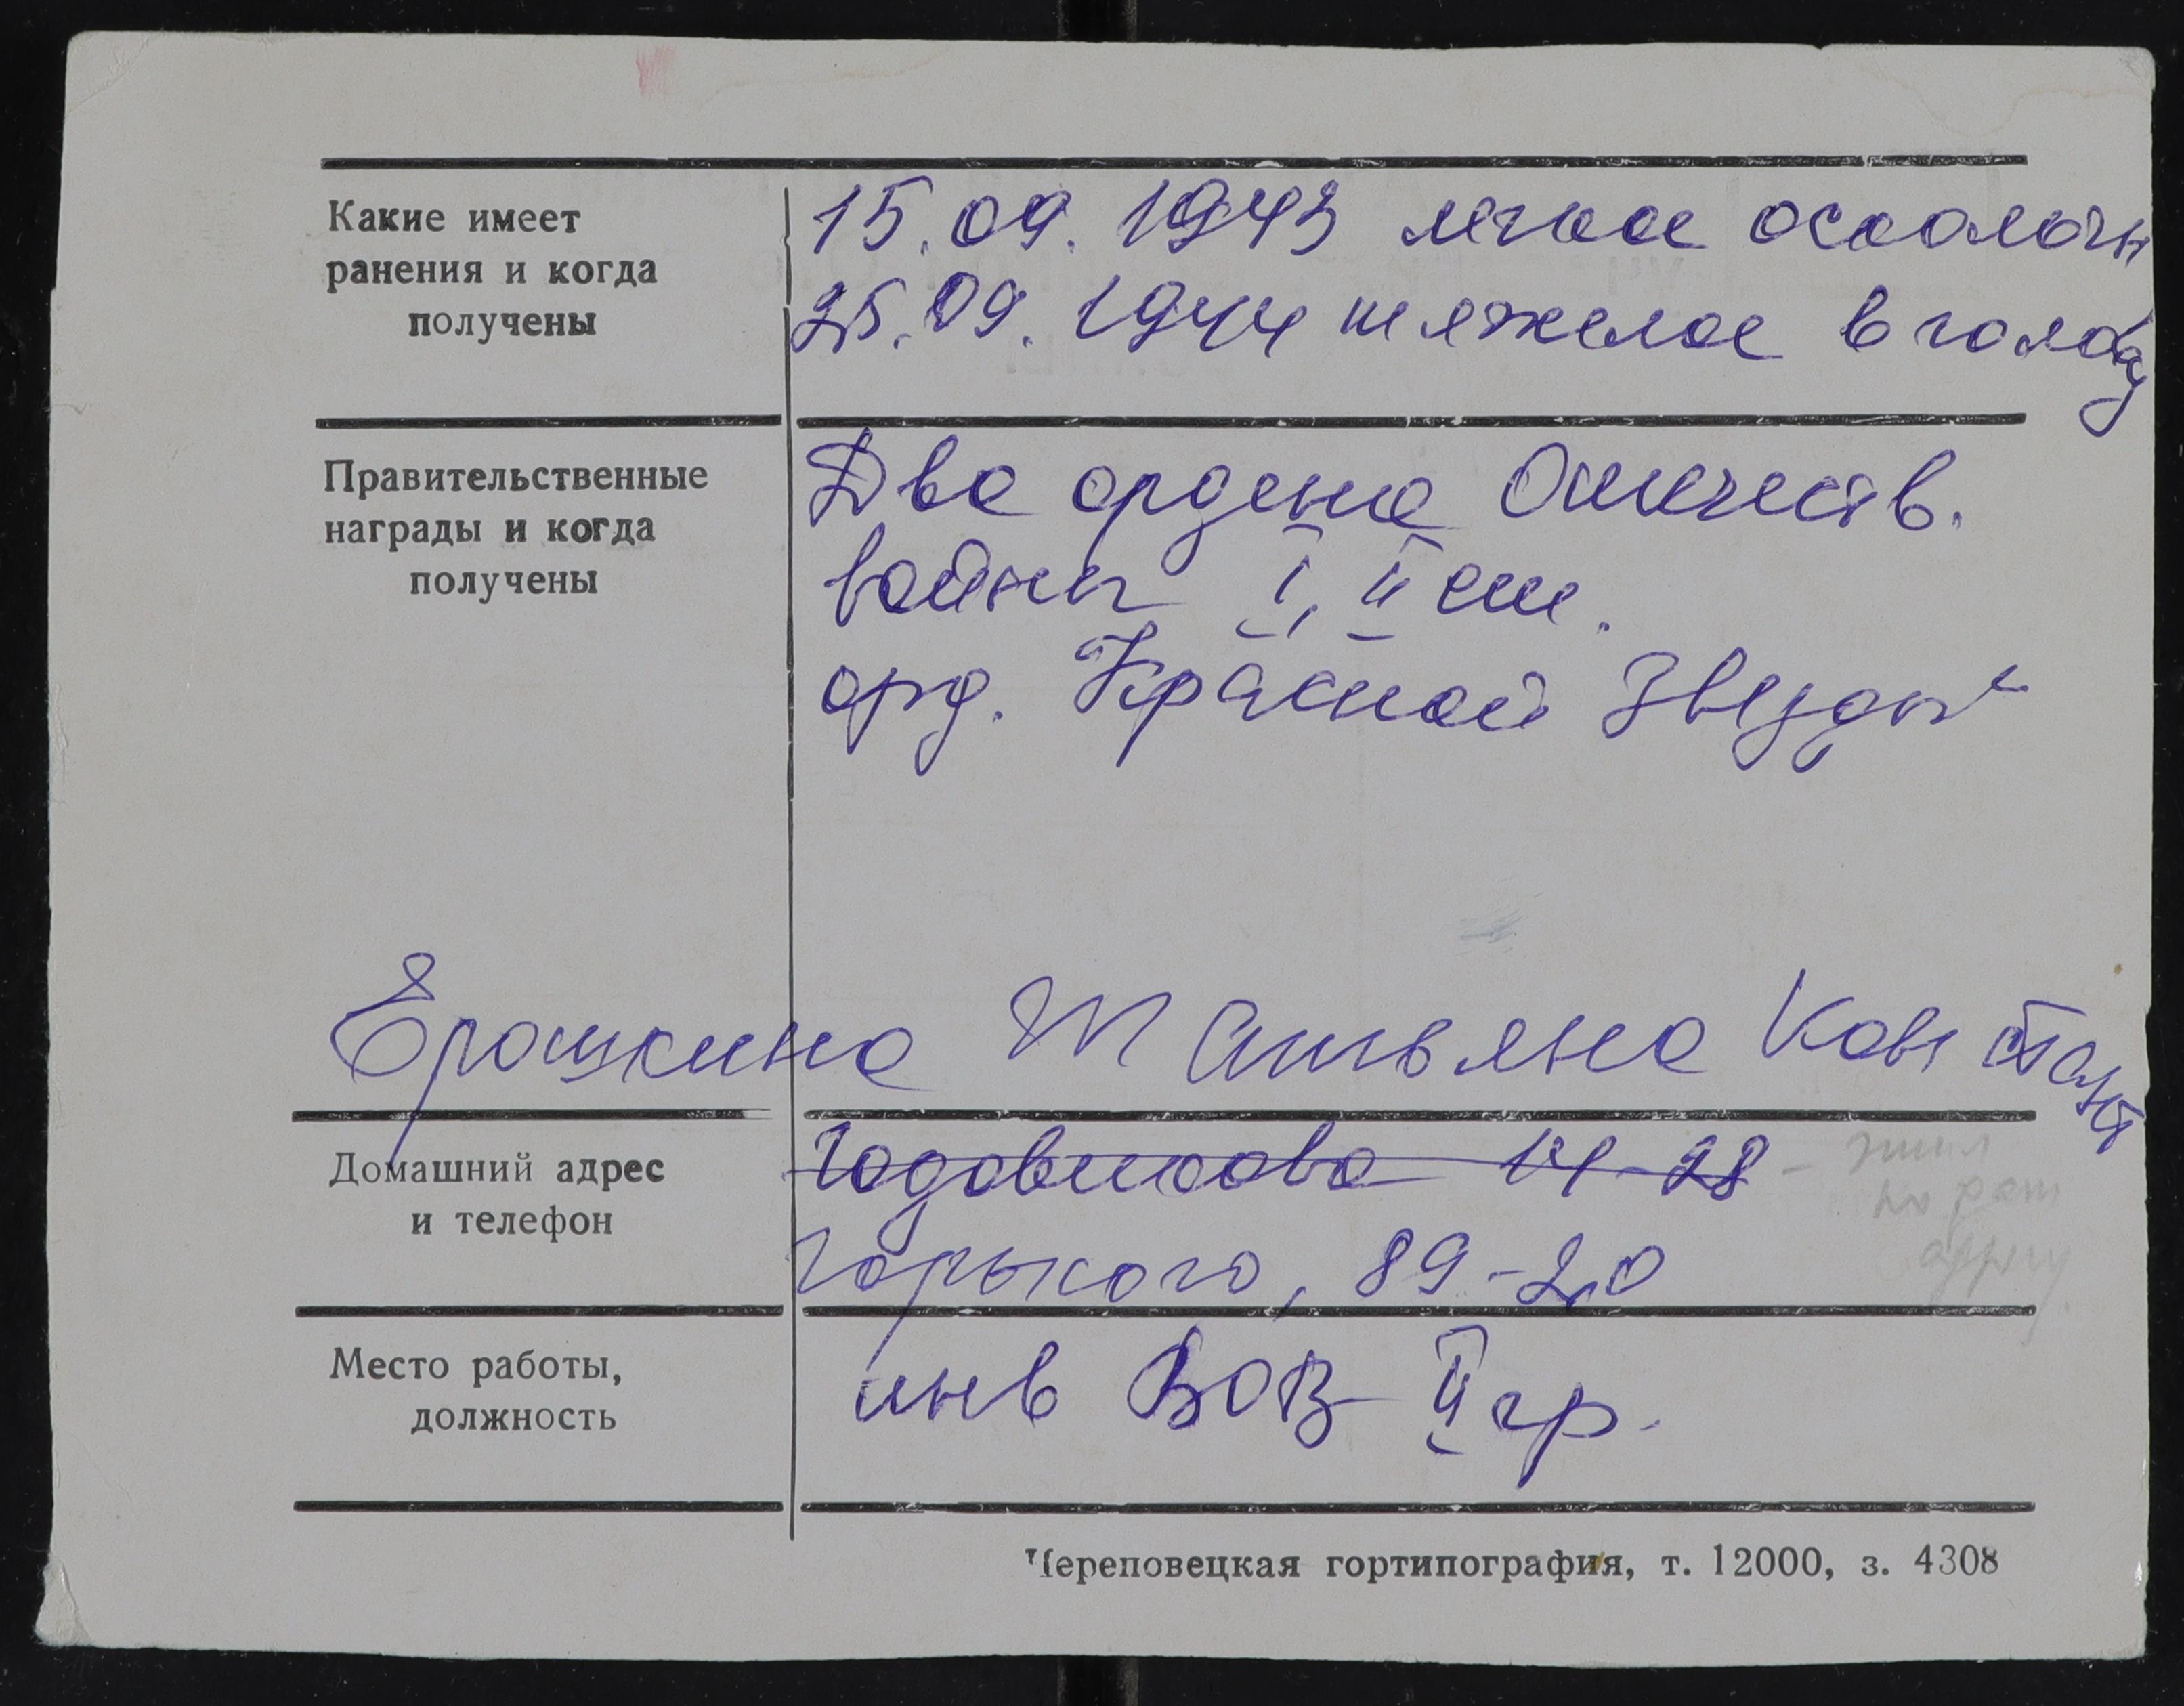 Какие имеет
ранения и когда
получены
15.09.1943 легкое осколочн
25.09.1944 тяжелое в голову
Правительственные
награды и когда
получены
Два ордена Отечеств.
войны I, II ст.
орд. "Красной Звезды"
Ерошкина Татьяна Констант
Домашний адрес
и телефон
Годовикова 14-28 - жил
по
адресу
Горького, 89-20
Место работы,
должность
инв ВОВ II гр.
Череповецкая гортипография, т. 12000, з. 4308